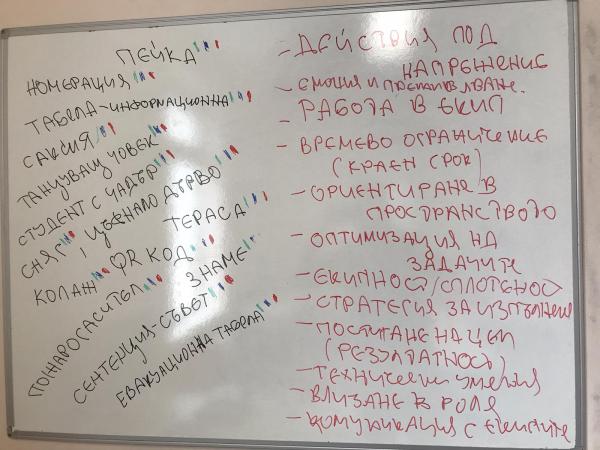 ПЕЙКА
НОМЕРАЦИЯ
ТАБЕЛА-ИНФОРМАЦИОННА
САКСИЯ
ТАНЦУВАЩ ЧОВЕК
СТУДЕНТ С ЧАДЪР
СНЯГ, ЦЪФНАЛО ДЪРВО
ТЕРАСА
КОЛАЖ, QR КОД
ЗНАМЕ
ПОЖАРОГАСИТЕЛ
СЕНТЕНЦИЯ-СЪВЕТ
ЕВАКУАЦИОННА ТАБЕЛА
- ДЕЙСТВИЯ ПОД
НАПРЕЖЕНИЕ
- ЕМОЦИЯ И
- РАБОТА В ЕКИП
- ВРЕМЕВО ОГРАНИЧЕНИЕ
(КРАЕН СРОК)
- ОРИЕНТИРАНЕ В
ПРОСТРАНСТВОТО
- ОПТИМИЗАЦИЯ НА
ЗАДАЧИТЕ
- ЕКИПНОСТ/СПЛОТЕНОСТ
- СТРАТЕГИЯ ЗА ИЗПЪЛНЕНИЕ
- ПОСТИГАНЕ НА ЦЕЛ
(РЕЗУЛТАТНОСТ)
- ТЕХНИЧЕСКИ УМЕНИЯ
- ВЛИЗАНЕ В РОЛЯ
- КОМУНИКАЦИЯ С ЕКИПИТЕ